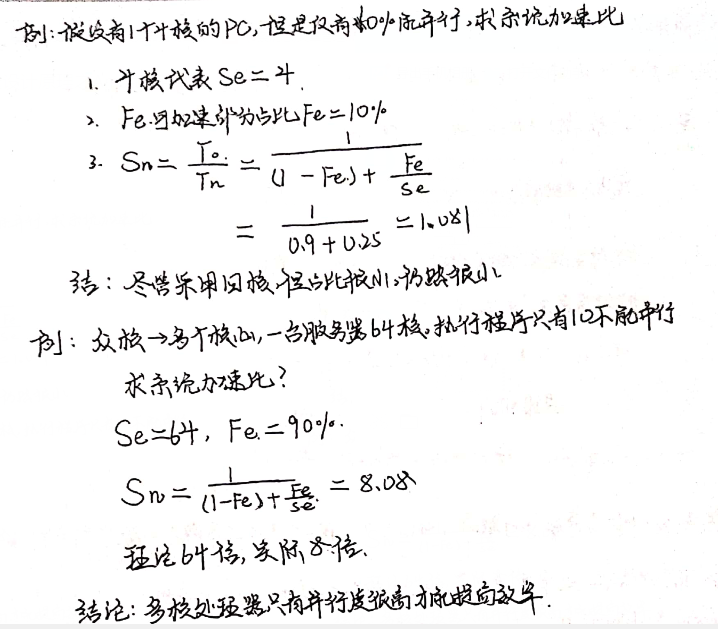 例:假设有1个4核的PC,但是仅有10%能并行,求系统加速比
1. 4核代表 Se=4.
2. Fe.可加速部分占比 Fe=10%
3. Sn= To. / Tn = 1 / (1-Fe.)+ Fe / Se
= 1 / 0.9+0.25 =1.081
结: 尽管采用四核,但占比很小,仍然很小
例: 众核→多个核心,一台服务器64核,执行程序只有10不能并行
求系统加速比?
Se=64, Fe.=90%.
Sn= 1 / (1-Fe)+ Fe / Se. = 8.08
理论64倍,实际8倍.
结论: 多核处理器只有并行度很高才能提高效率.